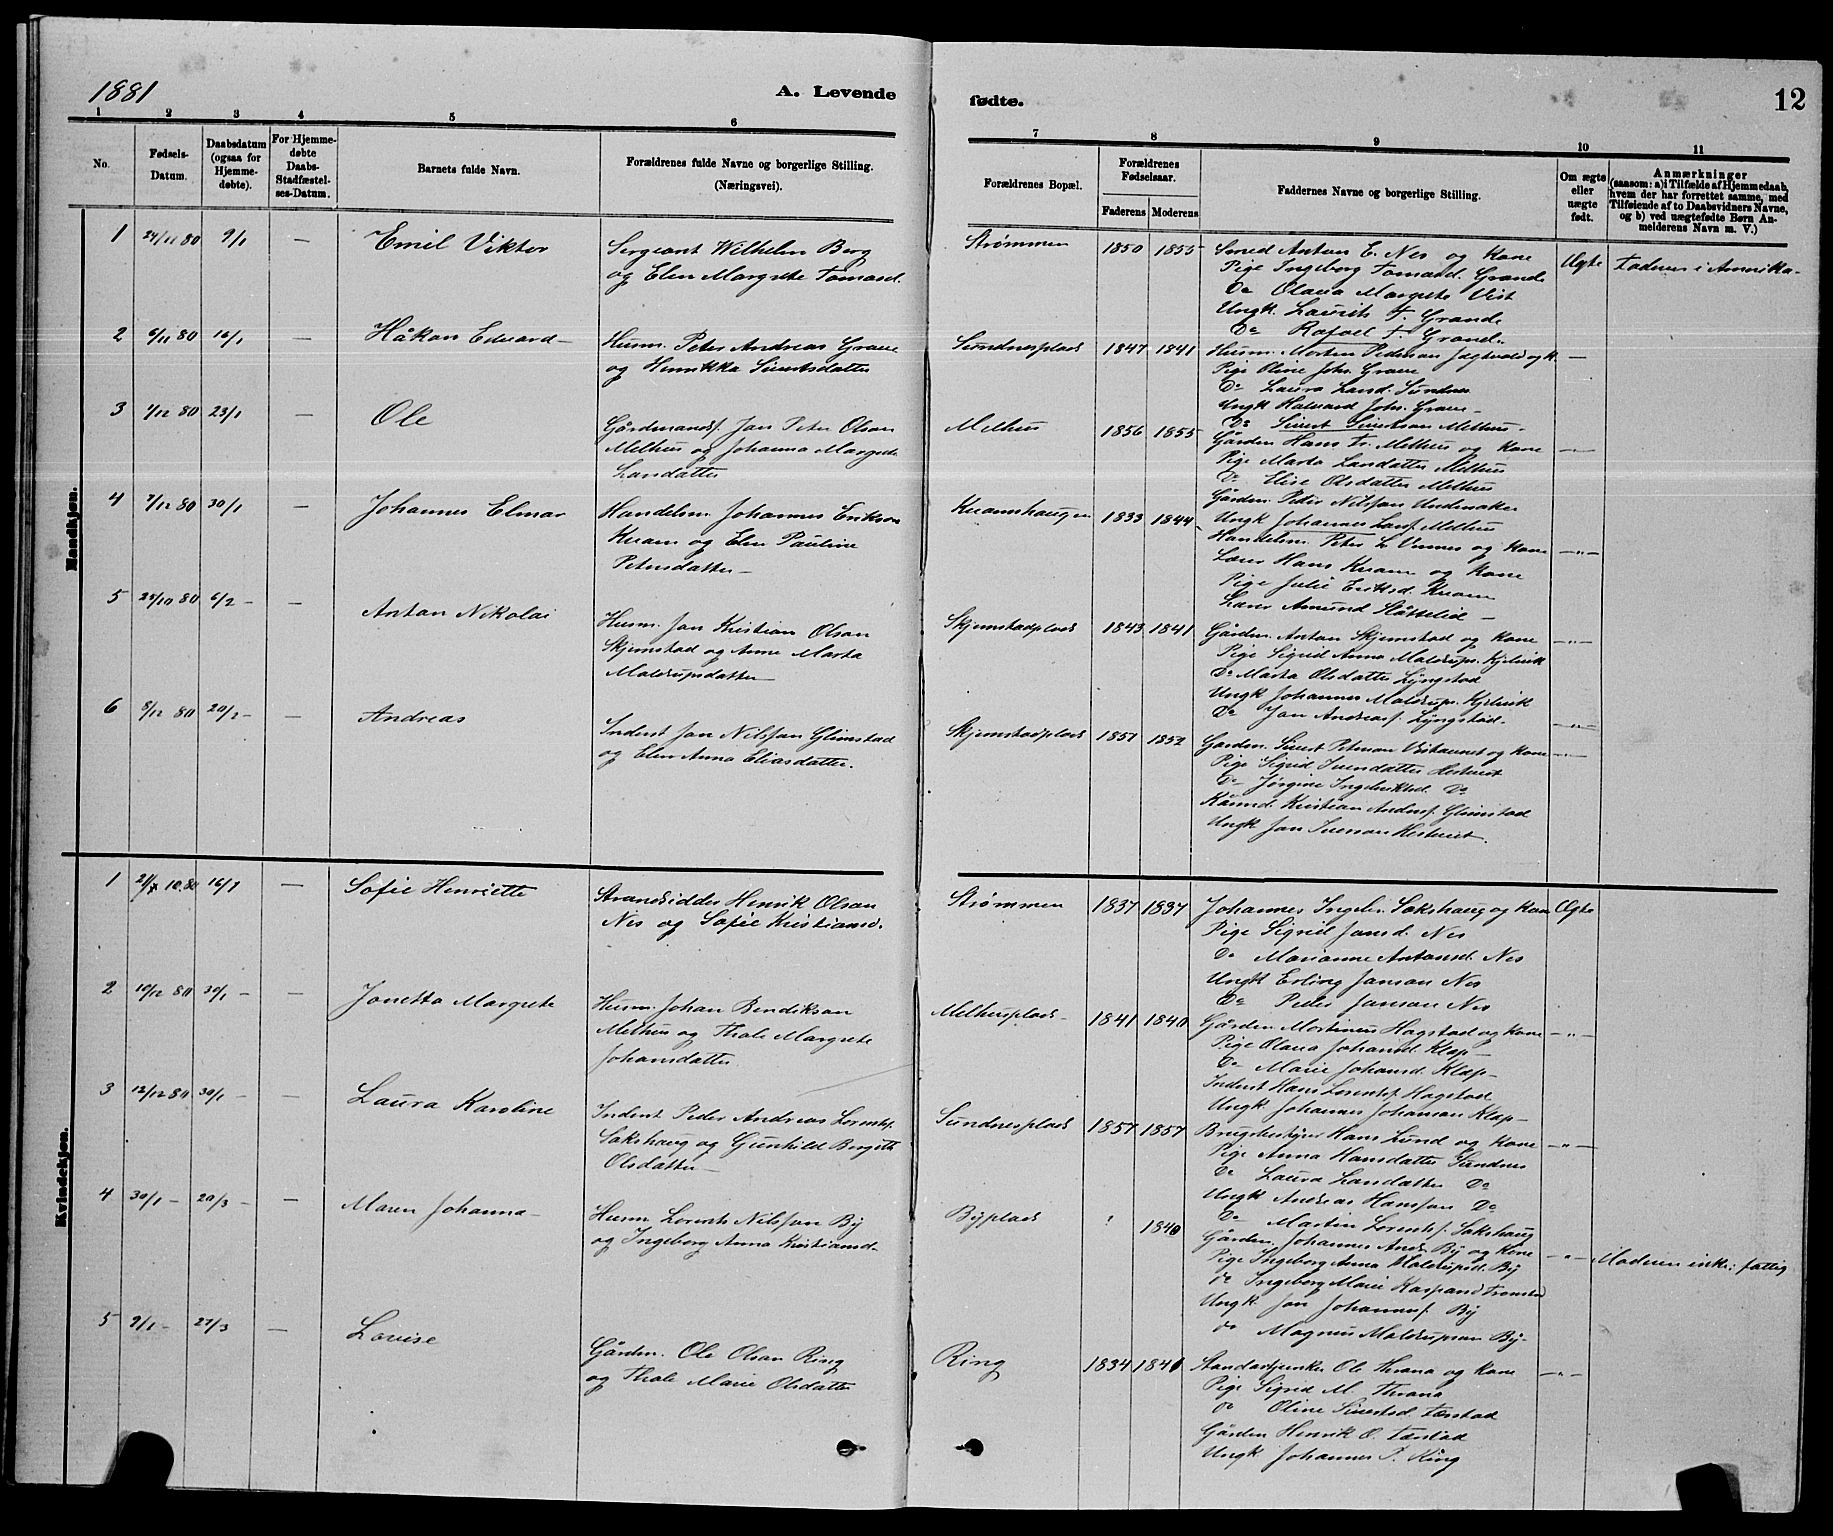 1881
A. Levende
fødte.
12
1 2 3 4 5 6 7 8 9 10 11
No.
Fødsels-Datum.
Daabsdatum (ogsaa for Hjemmedøbte).
For Hjemmedøbte Daabs-Stadfæstelses-Datum.
Barnets fulde Navn.
Forældrenes fulde Navne og borgerlige Stilling.
(Næringsvei).
Forældrenes Bopæl.
Forældrenes Fødselsaar.
Faderens Moderens
Faddernes Navne og borgerlige Stilling.
Om ægte eller uægte født.
Anmærkninger
(saasom: a) i Tilfælde af Hjemmedaab, hvem der har forrettet samme, med Tilføiende af to Daabsvidners Navne, og b) ved uægtefødte Børn Anmelderens Navn m. V.)
Mandkjøn.
1 24/11 80 9/1 — Emil Viktor
Sergeant Wilhelm Berg
og Elen Margrete Tomasd.
Strømmen 1850 1855
Smed Antun E. Nes og Kone
Pige Ingeborg Tomasd. Grande
Do Olava Margrete Vist
Ungk. Laurits T. Grande
Do Rafael T. Grande
Ægte
Faderen i Amerika
2 6/11 80 16/1 — Håkon Edvard
Husm. Peter Andreas Graue
og Henrikka Siurtsdatter
Sundnesplads 1847 1841
Husm. Morten Pederson
Pige Oline Joh. Graue
Do Laura Larsd. Sundnes
Ungk Halvard Joh. Graue
Do Siurt Siurtson Melhus
3 7/12 80 23/1 — Ole
Gårdmands. Jan Peter Olson
Melhus og Johanna Margrete
Larsdatter
Melhus 1856 1855
Gården Hans Tr. Melhus og Kone
Pige Marta Larsdatter Melhus
Do Elise Olsdatter Melhus
Gården. Peter Nilsson
Ungk Johannes Larss. Melhus
4 7/12 80 30/1 — Johannes Elmar
Handelsm. Johannes Erikson
Kuam og Elen Pauline
Petersdatter
Kuamshaugen 1833 1844
Handelsm. Peter L. Vennes og Kone
Lærer Hans Kuam og Kone
Pige Julie Eriksd. Kuam
Lærer Amund Slåttelid
5 24/10 80 6/2 — Anton Nikolai
Husm. Jon Kristian Olson
Skjemstad og Anne Marta
Maldrupsdatter
Skjemstadplads 1843 1841
Gården. Anton Skjemstad og Kone
Pige Sigrid Anna Maldrups. Kjelvik
Do Marta Olsdatter Lyngstad
Ungk Johannes Maldrups. Kjelvik
Do Jon Andreass. Lyngstad
6 8/12 80 20/2 — Andreas
Inderst Jon Nilsson Glimstad
og Elen Anna Eliasdatter.
Skjemstadplads 1851 1852
Garden. Siurt Peterson og Kone
Pige Sigrid Suendatter
Do Jørgine Ingebriktsd. Do
Kårmd. Kristian Anders. Glimstad
Ungk Jon Suenson
Kvindekjøn.
1 16/1 — Sofie Henriette
Strandsidder Henrik Olson
Nes og Sofie Kristiansd.
Strømmen 1837 1837
Johannes Ingebr. Sakshaug og Kone
Pige Sigrid Jonsd. Nes
Do Marianne Antonsd. Nes
Ungk Erling Janson Nes
Do Peder Janson Nes
Ægte
2 10/12 80 30/1 — Jonetta Margrete
Husm. Johan Bendikson
Melhus og Thale Margrete
Johansdatter
Melhusplads 1841 1840
Gården Mortinus Hagstad og Kone
Pige Olava Johansd. Klap
Do Marie Johansd. Klap
Inderst Hans Lorents. Hagstad
Ungk. Johannes Johanson Klap
3 12/12 80 30/1 — Laura Karoline
Inderst Peder Andreas Lorents.
Sakshaug og Gunhild Birgitte
Olsdatter
Sundnesplads 1857 1857
Brugsbestyrer Hans Lund og Kone
Pige Anna Hansdatter Sundnes
Do Laura Larsdatter Do
Ungk Andreas Hansson Do
Do Martin Lorents. Sakshaug
4 30/1 20/3 — Maren Johanna
Husm Lorents Nilsson By
og Ingeborg Anna Kristiansd.
Byplads ? 1840
Gården. Johannes Ands. By og Kone
Pige Ingeborg Anna Maldrupsd. By
do Ingeborg Marie
Ungk. Jon Johanness. By
do Magnus Maldrupson By
Moderen enke: fattig
5 9/1 27/3 — Lovise
Gården. Ole Olson Ring
og Thale Marie Olsdatter
Ring 1834 1841
Ole Thrana og Kone
Pige Sigrid M. Thrana
do Oline Siurtsd.
Gården Henrik O.
Ungk. Johannes P. Ring